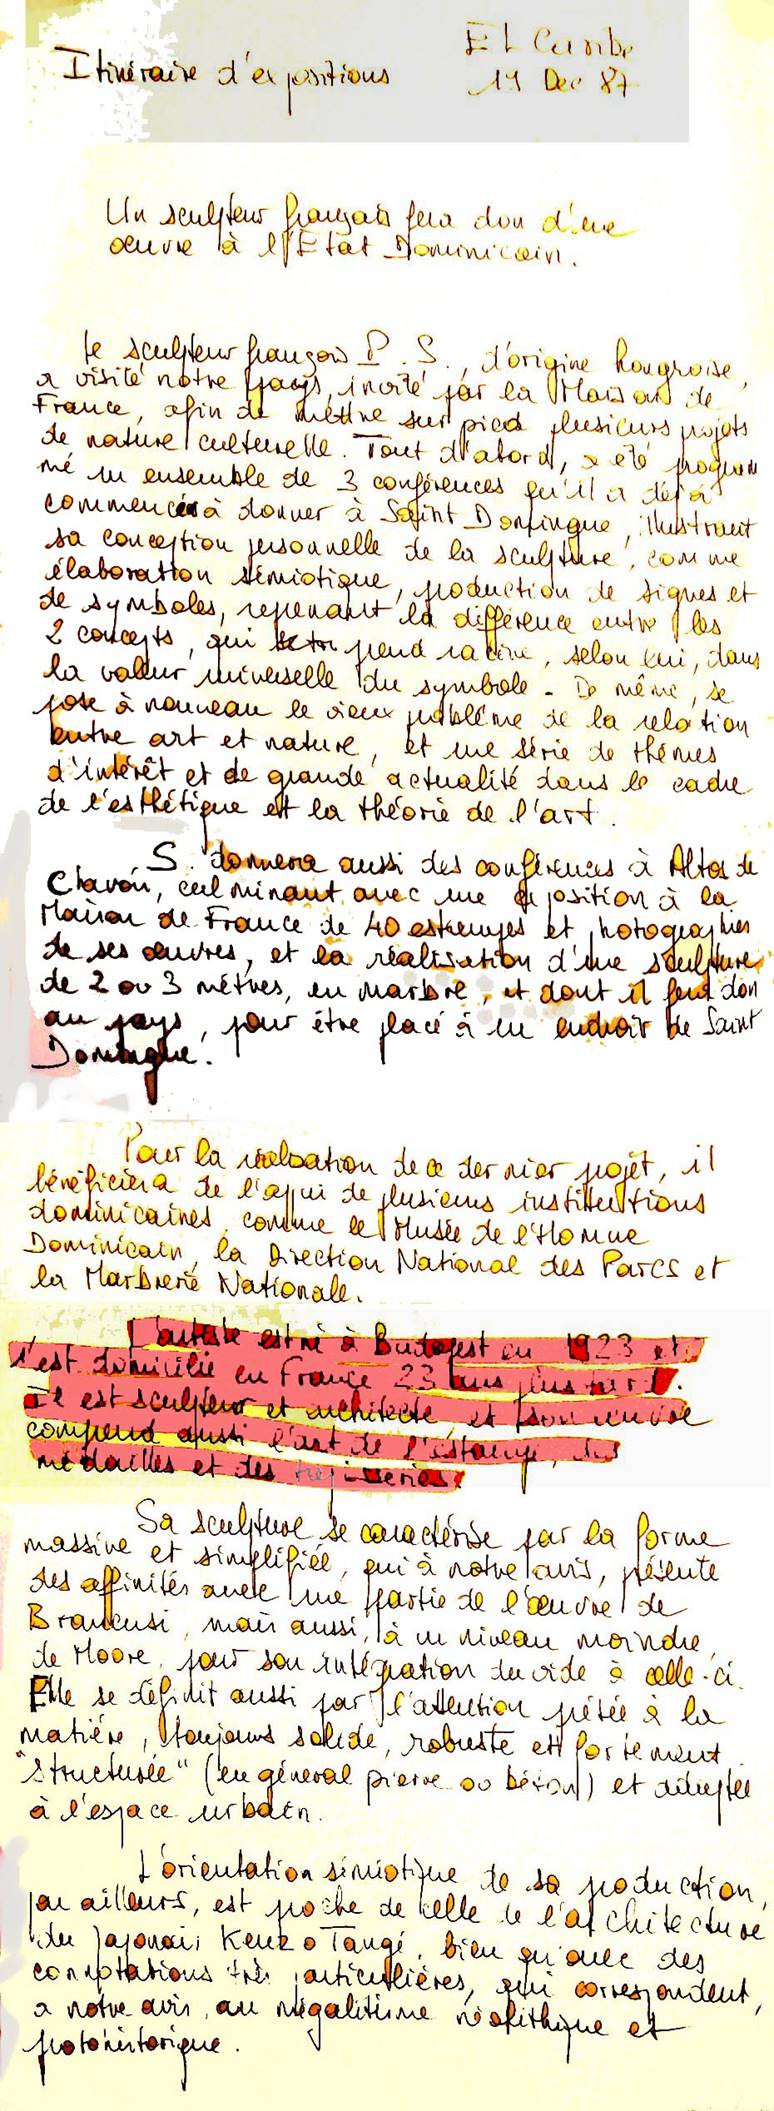 Itinéraire d'expositions
El Caribe
19 Dec 87
Un sculpteur français fera don d'une
œuvre à l'Etat Dominicain.
Le sculpteur français P. S., d'origine hongroise,
a visité notre pays, invité par la Maison de
France, afin de mettre sur pied plusieurs projets
de nature culturelle. Tout d'abord, a été program
mé un ensemble de 3 conférences qu'il a déjà
commencé à donner à Saint Domingue, illustrant
sa conception personnelle de la sculpture, comme
élaboration sémiotique, production de signes et
de symboles, reprenant la différence entre les
2 concepts, qui prend racine, selon lui, dans
la valeur universelle du symbole. De même, se
pose à nouveau le vieux problème de la relation
entre art et nature, et une série de thèmes
d'intérêt et de grande actualité dans le cadre
de l'esthétique et la théorie de l'art.
S. donnera aussi des conférences à Altos de
Chavón, culminant avec une exposition à la
Maison de France de 40 estampes et photographies
de ses œuvres, et la réalisation d'une sculpture
de 2 ou 3 mètres, en marbre, et dont il fera don
au pays, pour être placé à un endroit de Saint
Domingue.
Pour la réalisation de ce dernier projet, il
bénéficiera de l'appui de plusieurs institutions
dominicaines, comme le Musée de l'Homme
Dominicain, la Direction National des Parcs et
la Marbrerie Nationale.
L'artiste est né à Budapest en 1923 et
s'est domicilié en France 23 ans plus tard.
Il est sculpteur et architecte et son œuvre
comprend aussi l'art de l'estampe, des
médailles et des tapisseries.
Sa sculpture se caractérise par la forme
massive et simplifiée, qui à notre avis, présente
des affinités avec une partie de l'œuvre de
Brancusi, mais aussi, à un niveau moindre,
de Moore, pour son intégration du vide à celle-ci.
Elle se définit aussi par l'attention prêtée à la
matière, toujours solide, robuste et fortement
"structurée" (en général pierre ou béton) et adaptée
à l'espace urbain.
L'orientation sémiotique de sa production,
par ailleurs, est proche de celle de l'architecture
du Japonais Kenzo Tange, bien qu'avec des
connotations très particulières, qui correspondent,
a notre avis, au mégalitisme néolithique et
protohistorique.